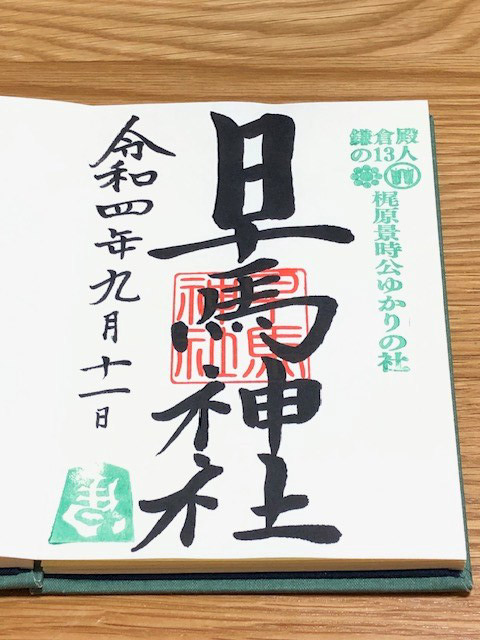 鎌倉殿
の13人
梶原景時公ゆかりの社
早馬神社
早馬
神社
令和四年九月十一日